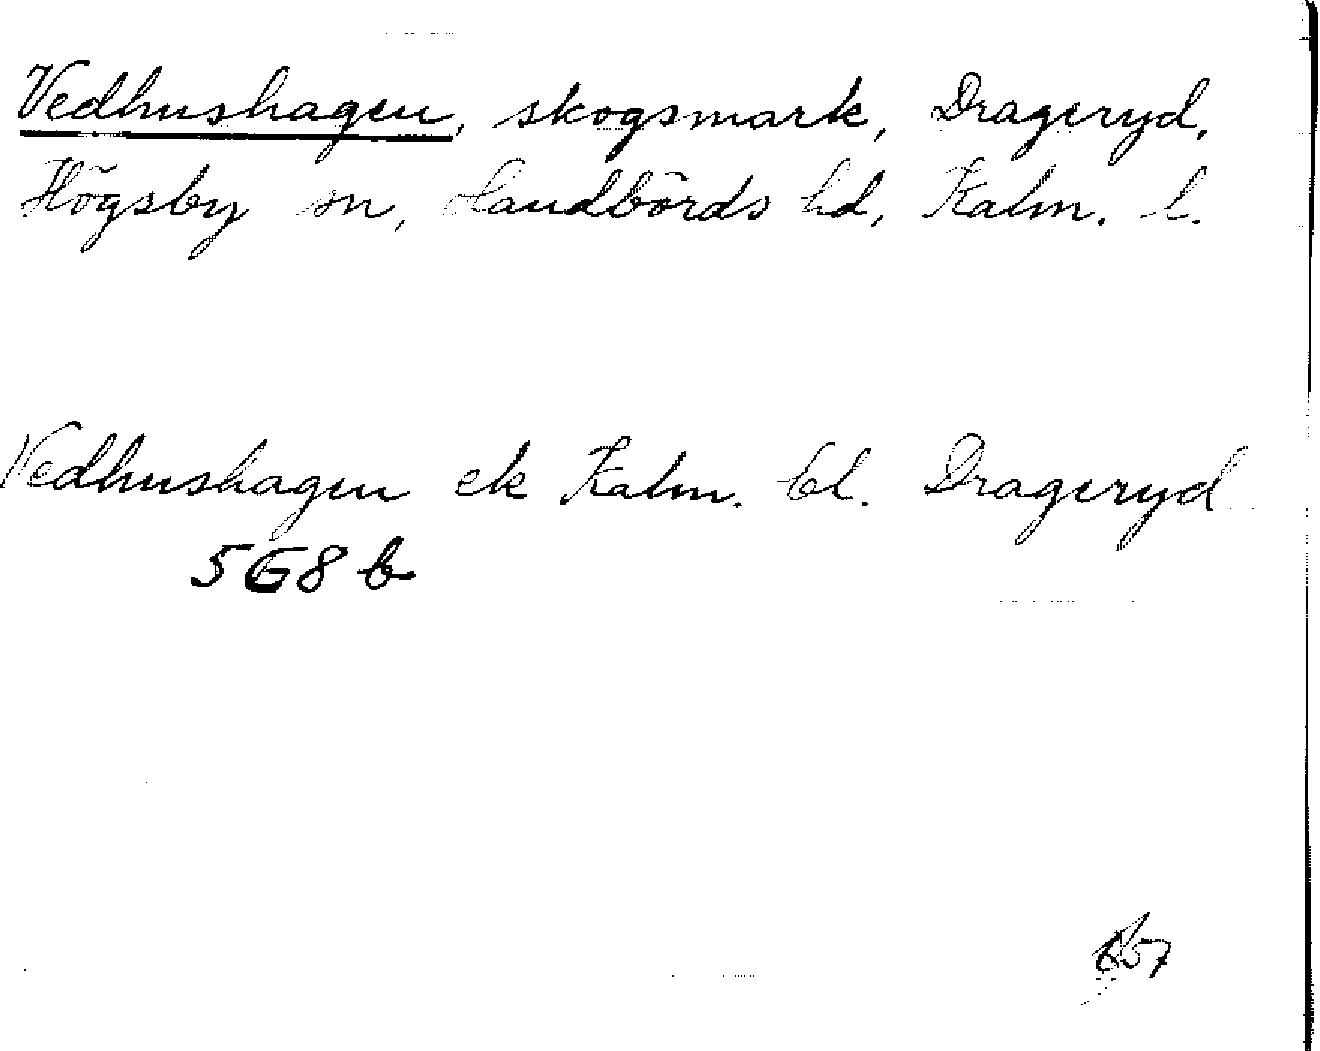 Vedhushagen, skogsmark, Drageryd,
Högsby sn, Handbörds hd, Kalm. l.
Vedhushagen ek Kalm. bl. Drageryd
5G8b